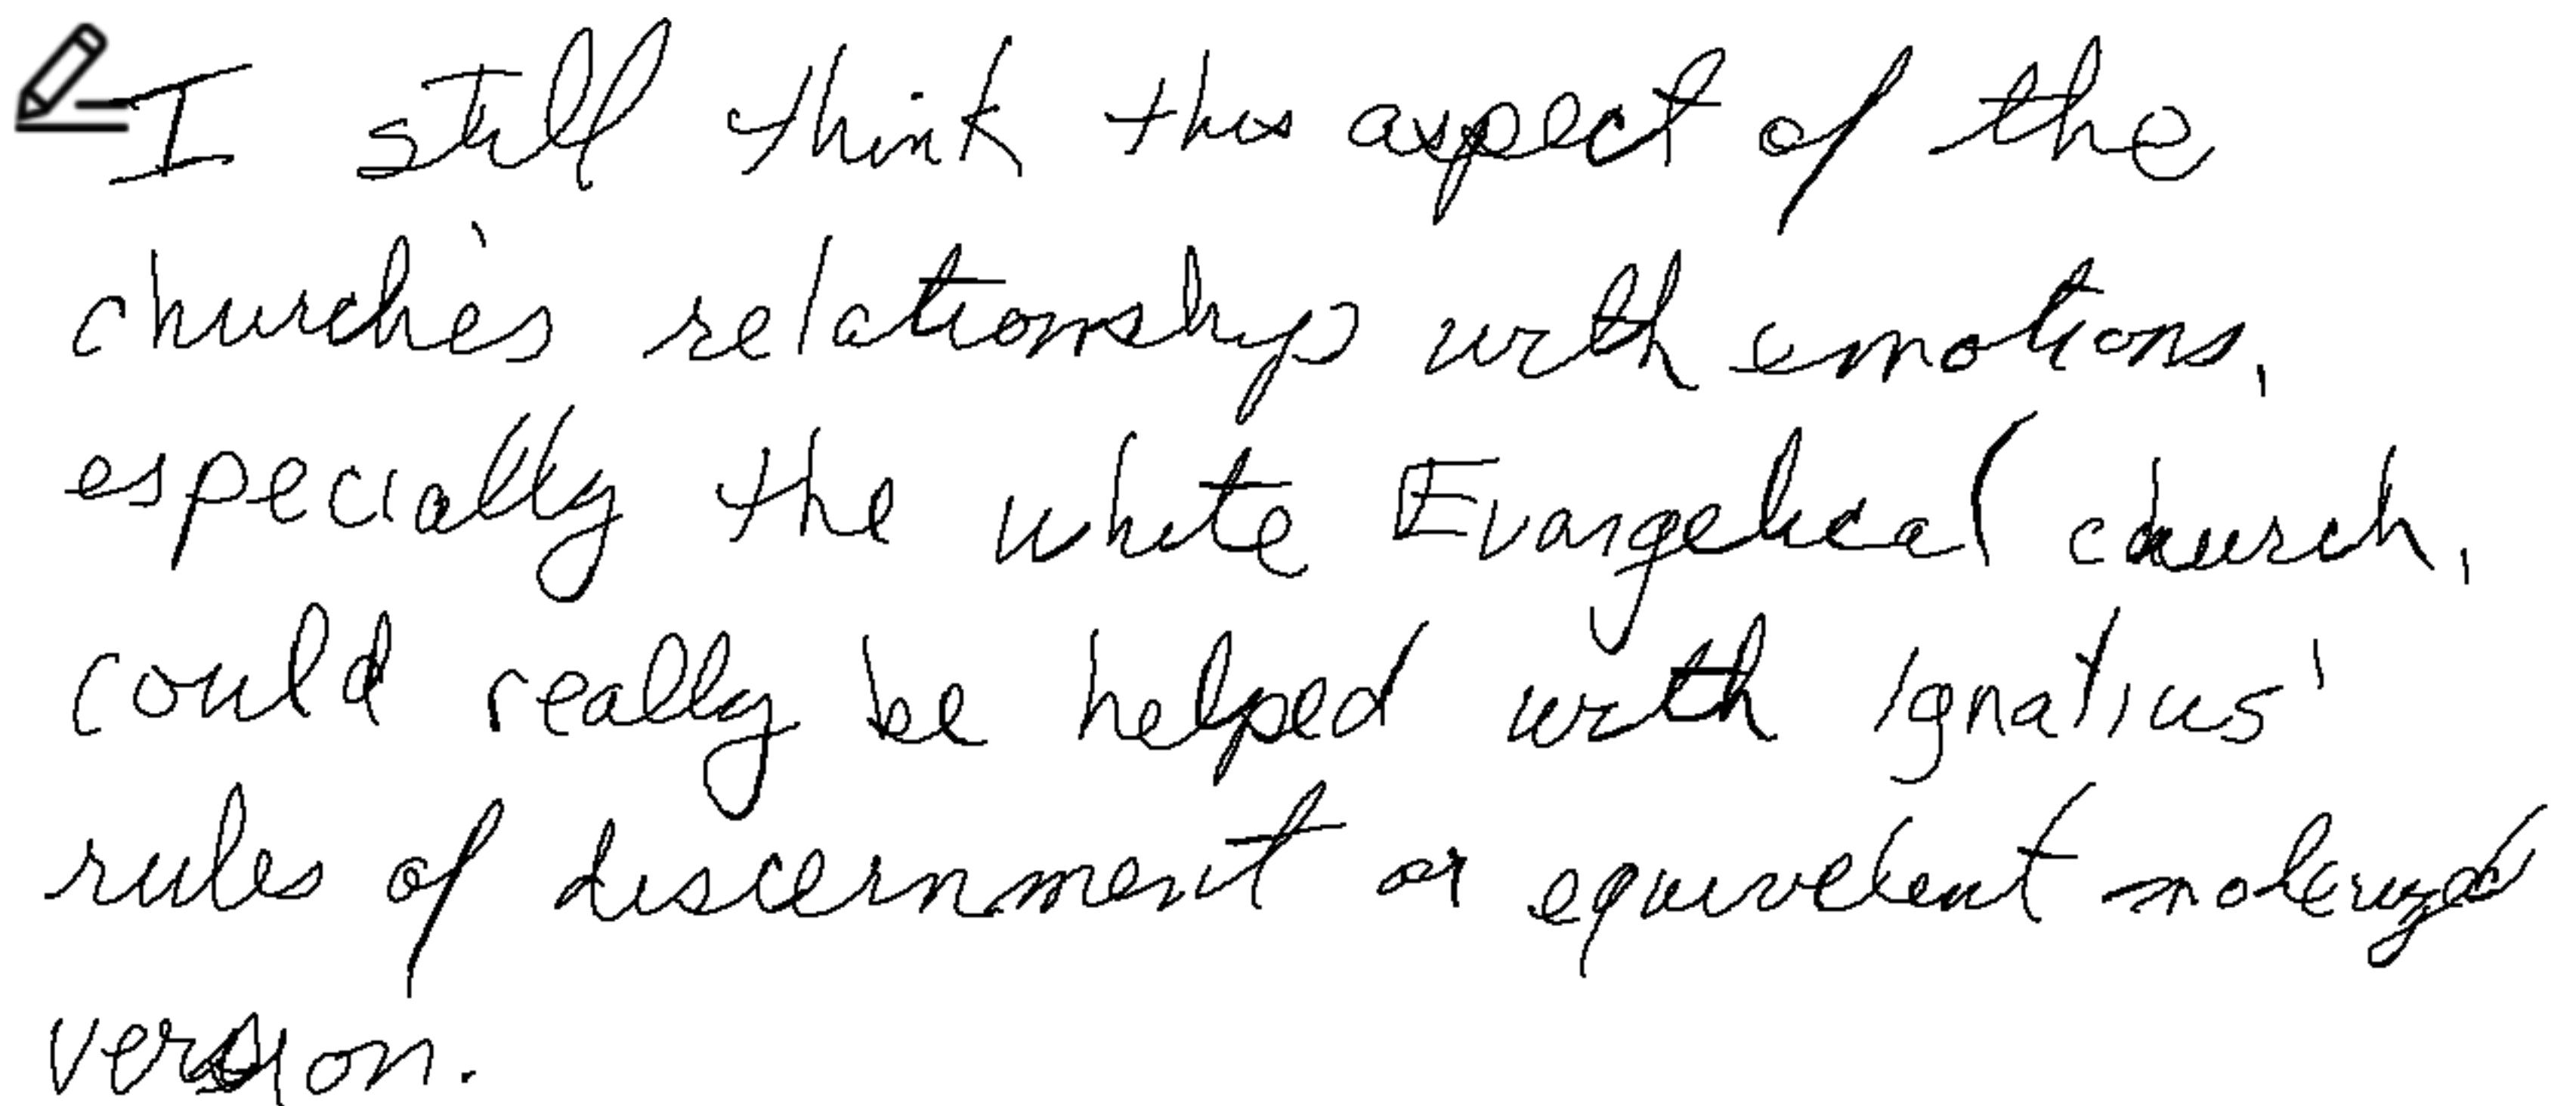 I still think this aspect of the
churche's relationship with emotions,
especially the white Evangelical church,
could really be helped with Ignatius'
rules of discernment or equivelent modernized
version.